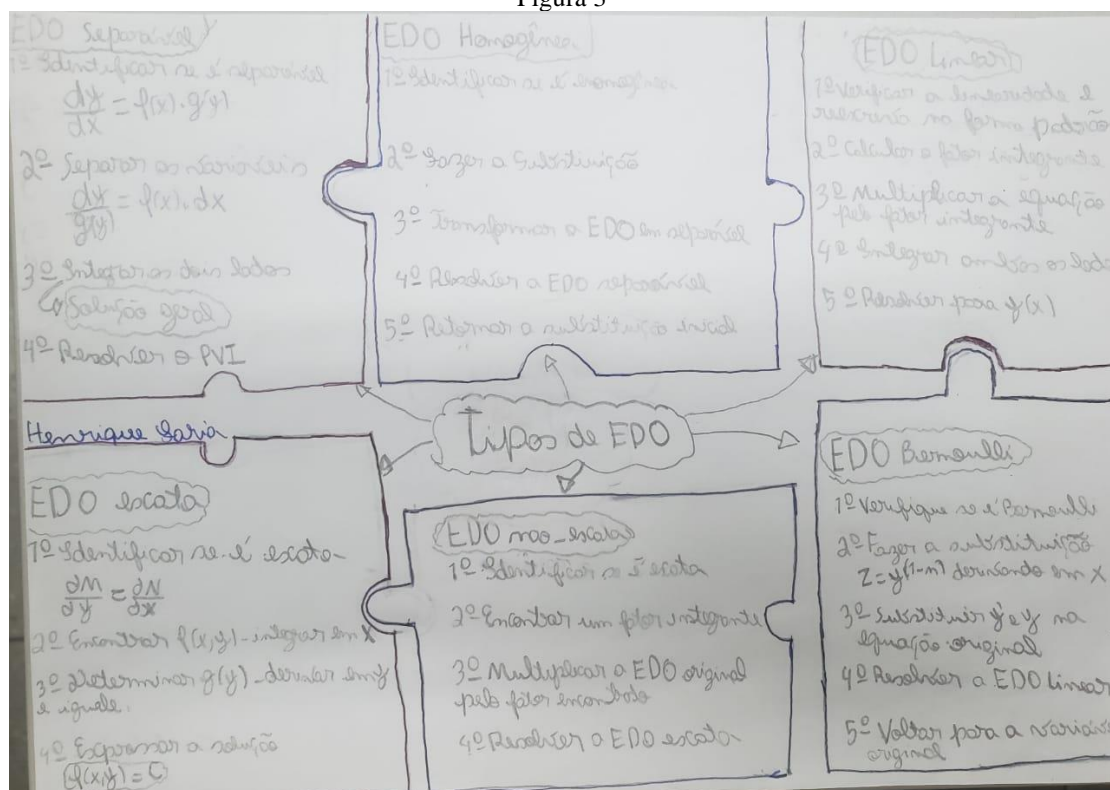 Figura 3
EDO Separável
1º Identificar se é separável
dy/dx = f(x).g(y)
2º Separar as variáveis
dy/g(y) = f(x).dx
3º Integrar os dois lados
Solução geral
4º Resolver o PVI
EDO Homogênea
1º Identificar se é
2º Fazer a Substituição
3º Transformar a EDO em separável
4º Resolver a EDO separável
5º Retornar a substituição inicial
EDO Linear
1º Verificar a linearidade e
na forma padrão
2º Calcular o fator integrante
3º Multiplicar a equação
pelo fator integrante
4º Integrar ambos os lado
5º Resolver para y(x)
Tipos de EDO
Henrique Faria
EDO exata
1º Identificar se é exata
∂M/∂y = ∂N/∂x
2º Encontrar f(x,y) - integrar em x
3º Determinar g(y) - derivar em y
e iguale.
4º Expressar a solução
f(x,y) = C
EDO não-exata
1º Identificar se é exata
2º Encontrar um fator integrante
3º Multiplicar a EDO original
pelo fator encontrado
4º Resolver a EDO exata
EDO Bernoulli
1º Verifique se é Bernoulli
2º Fazer a substituição
Z = y^(1-n) derivando em x
3º Substituir y' e y na
equação original
4º Resolver a EDO Linear
5º Voltar para a variáv
original